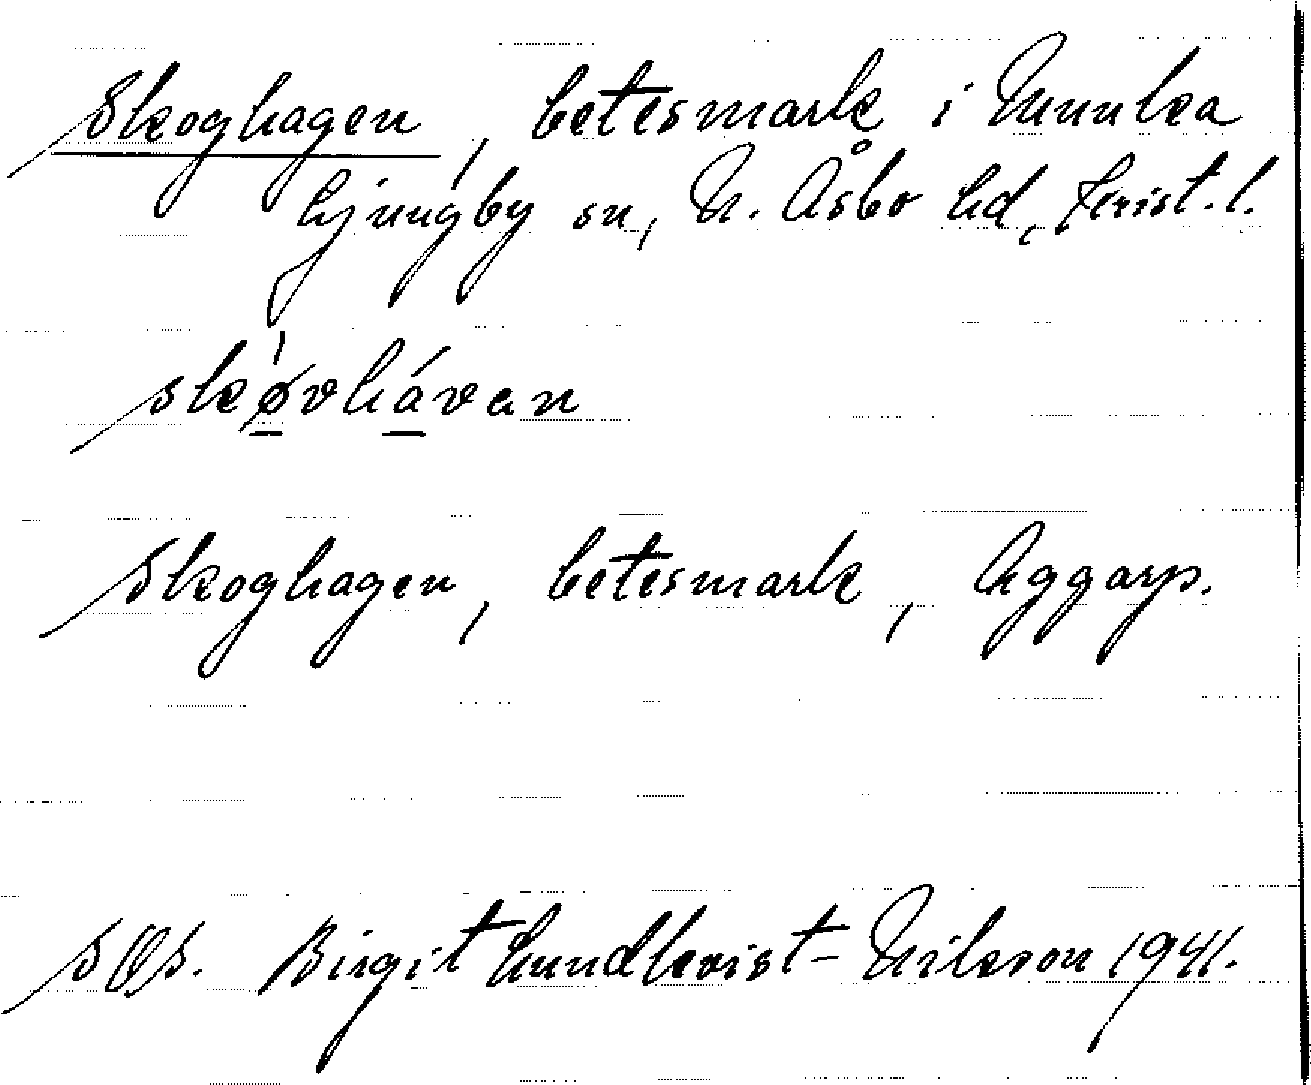 Skoghagen, betesmark i Munka
Ljungby sn, N. Åsbo hd, Krist. l.
skøvhávan
Skoghagen, betesmark, Aggarp.
SOS. Birgit Lundkvist-Nilsson 1941.